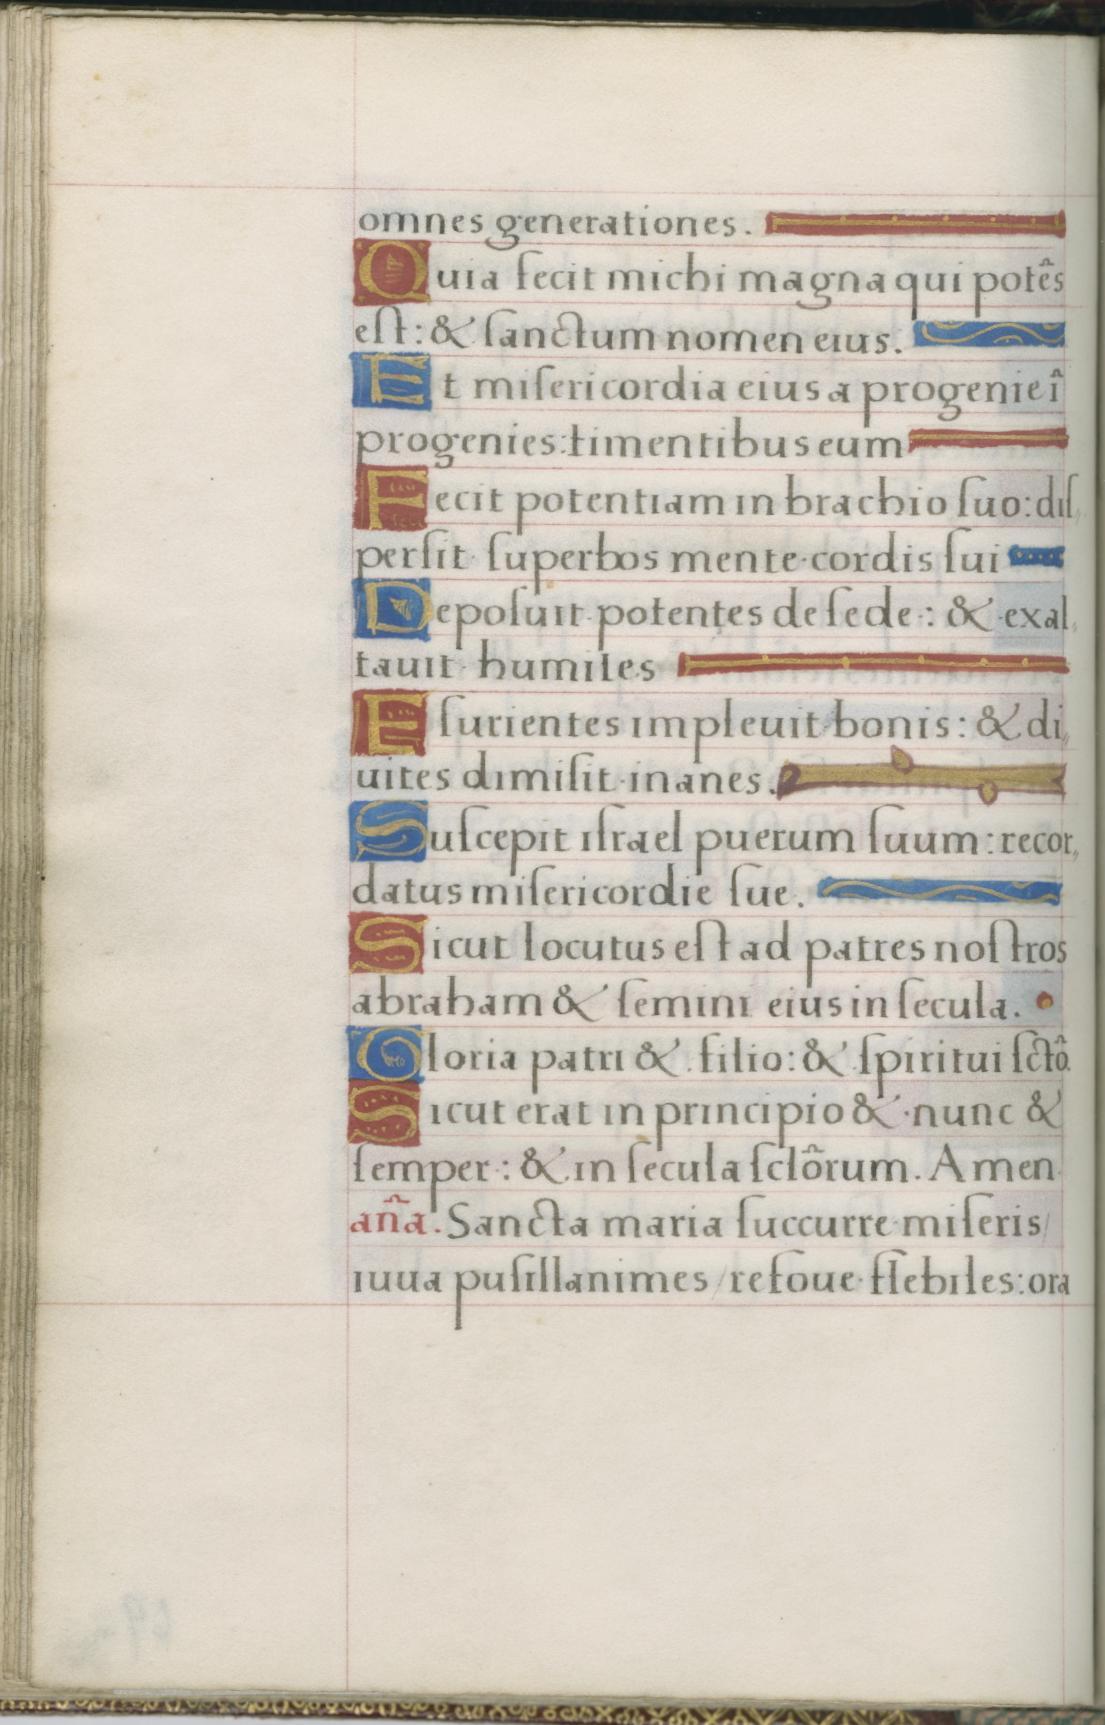 omnes generationes.
Quia fecit michi magna qui potẽs
eſt: & ſanctum nomen eius.
Et miſericordia eius a progenie ĩ
progenies: timentibus eum
Fecit potentiam in brachio ſuo: diſ,
perſit ſuperbos mente cordis ſui
Depoſuit potentes de ſede: & exal,
tauit humiles
Eſurientes impleuit bonis: & di,,
uites dimiſit inanes.
Suſcepit iſrael puerum ſuum: recor,,
datus miſericordie ſue.
Sicut locutus eſt ad patres noſtros
abraham & ſemini eius in ſecula.
Gloria patri & filio: & ſpiritui ſctõ.
Sicut erat in principio & nunc &
ſemper: & in ſecula ſclõrum. Amen
aña. Sancta maria ſuccurre miſeris/
iuua puſillanimes / refoue flebiles: ora